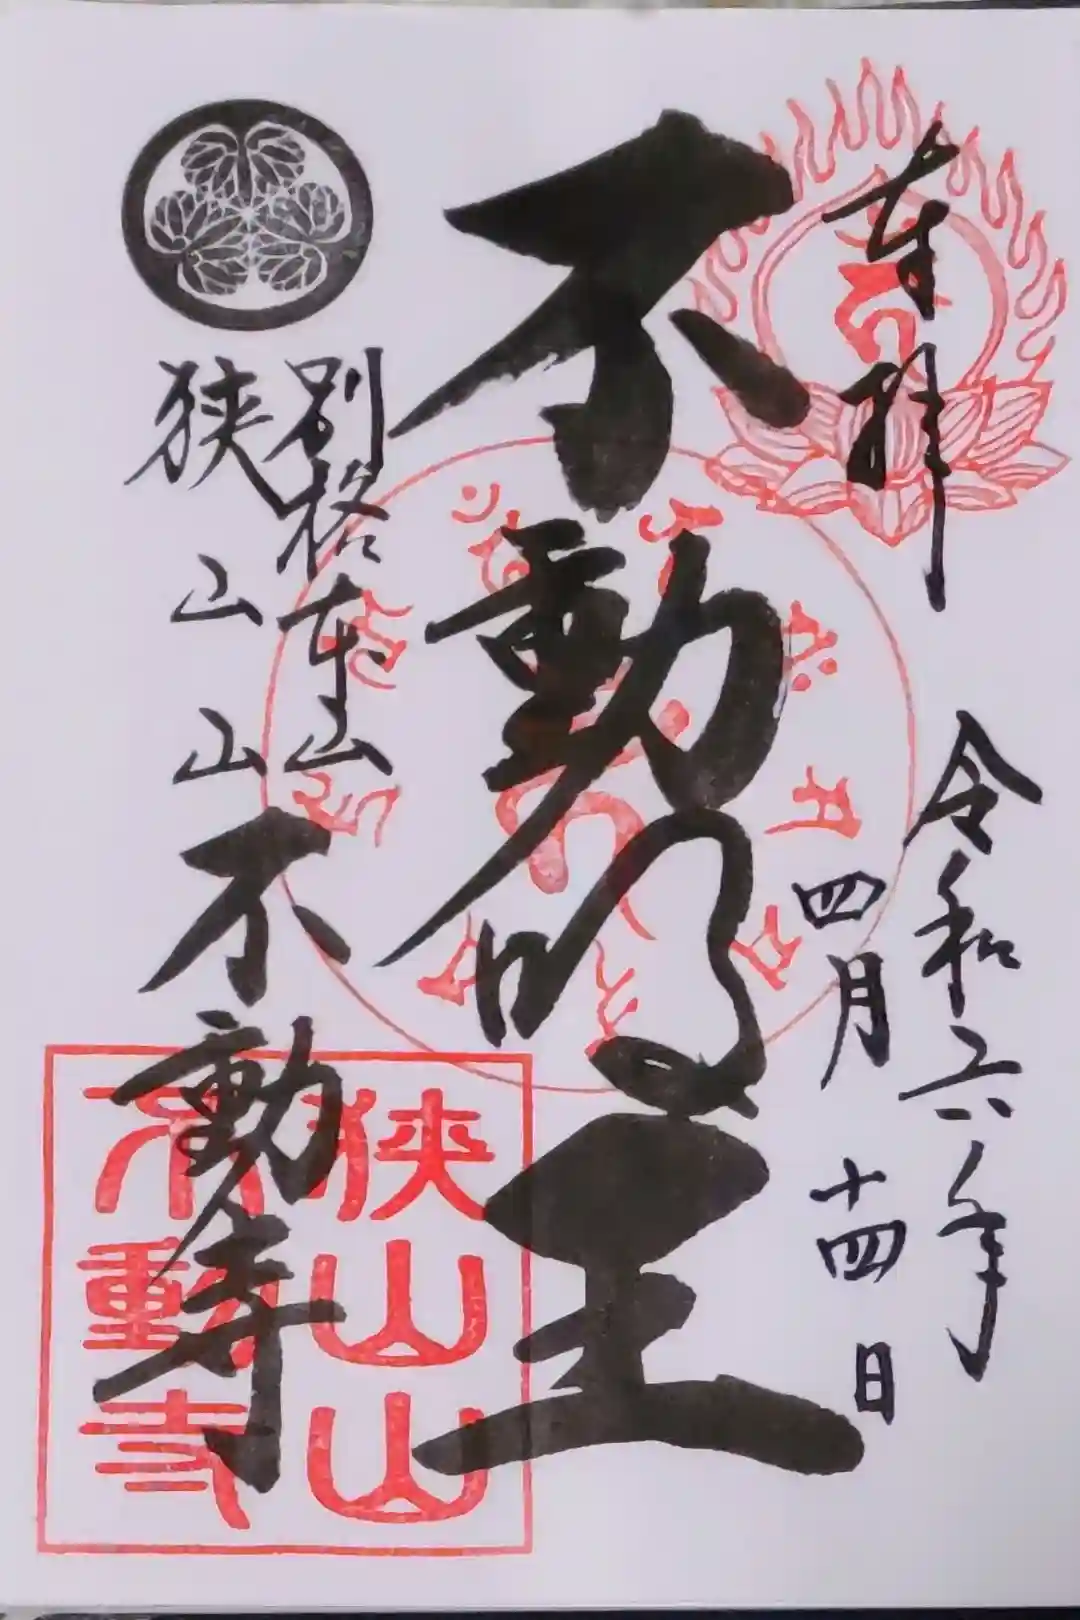 奉拝
令和六年
四月十四日
不動明王
別格本山
狭山山不動寺
狭山山
不動寺